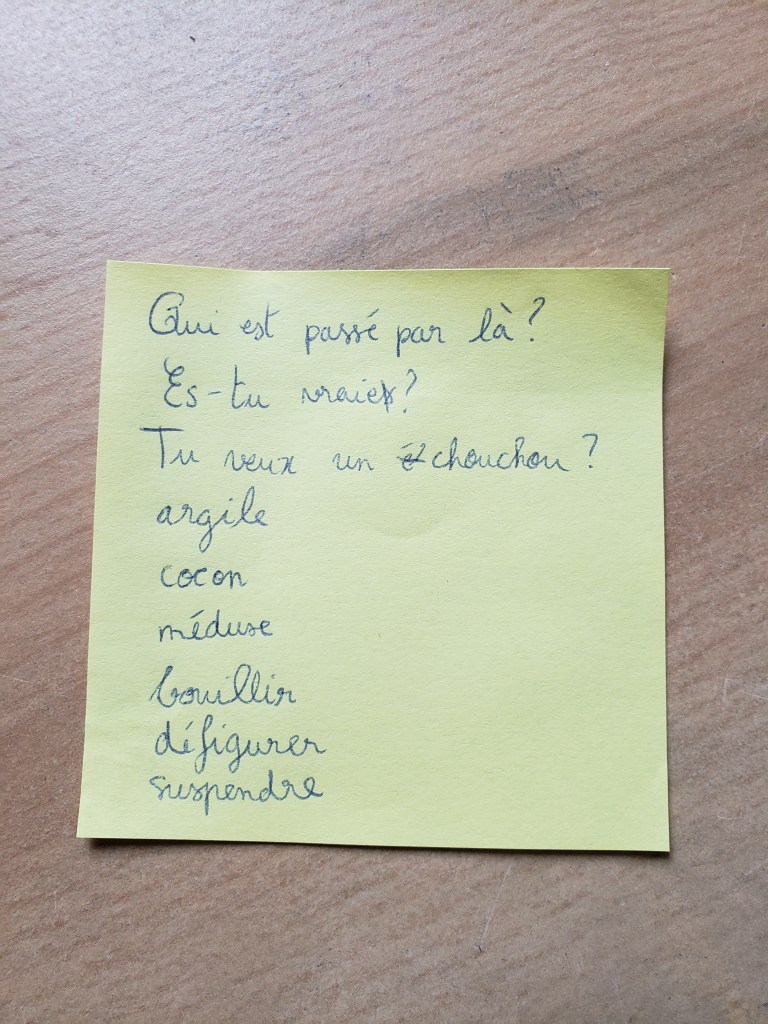 Qui est passé par là ?
Es-tu vraie ?
Tu veux un chouchou ?
argile
cocon
méduse
bouillir
défigurer
suspendre